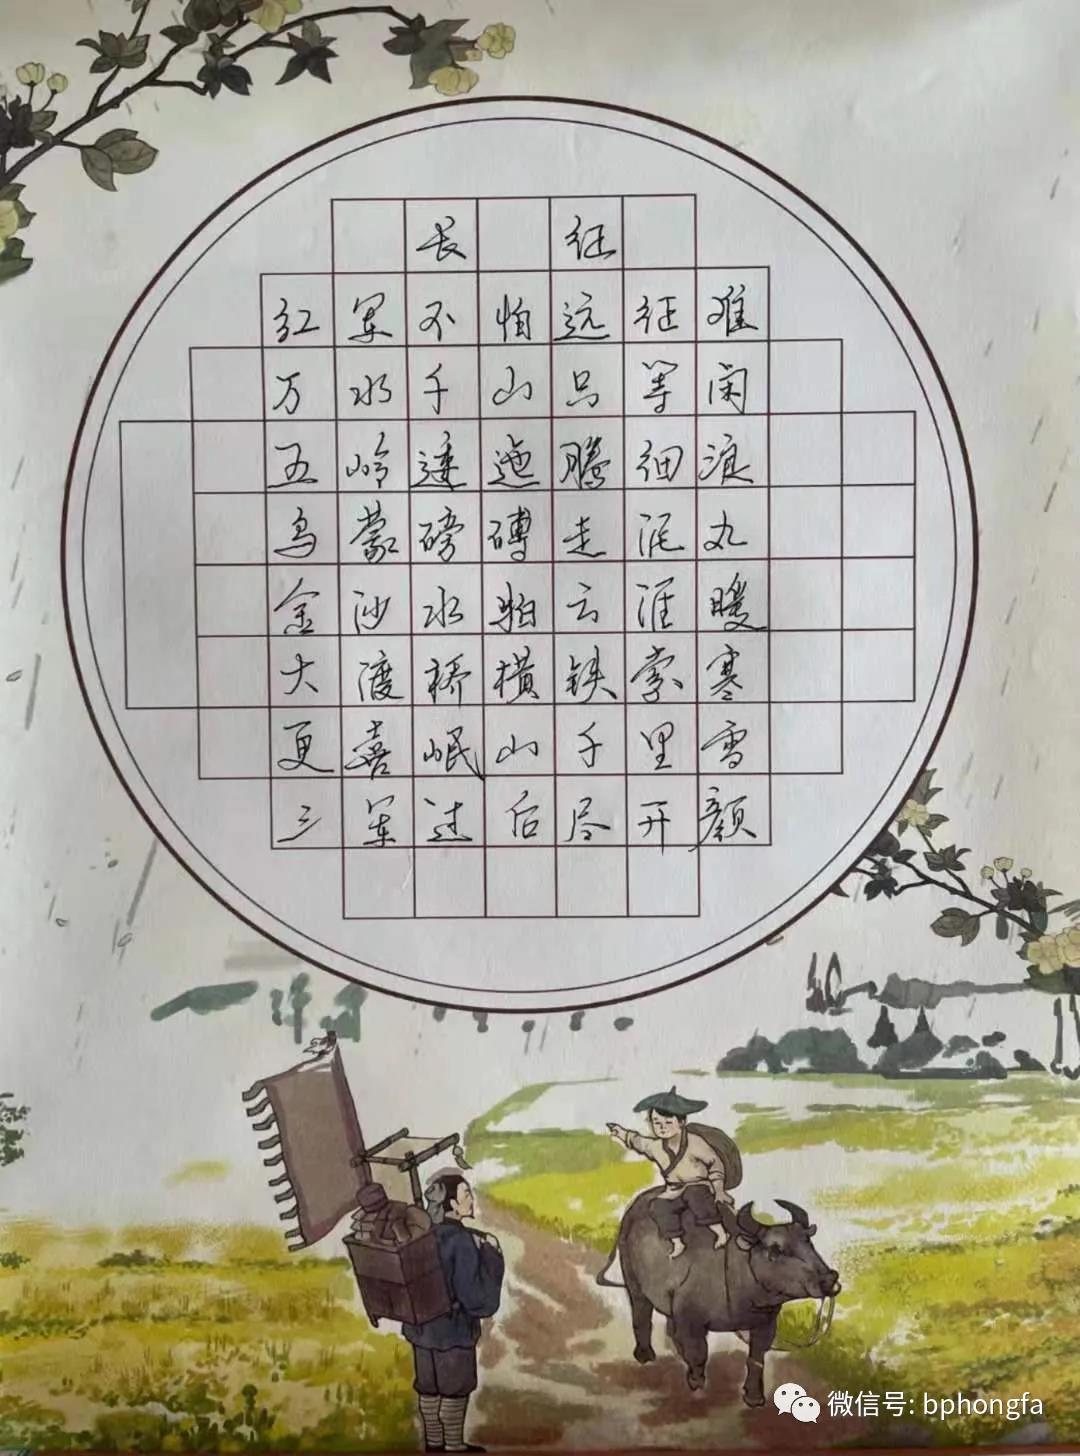 长征
红军不怕远征难
万水千山只等闲
五岭逶迤腾细浪
乌蒙磅礴走泥丸
金沙水拍云涯暖
大渡桥横铁索寒
更喜岷山千里雪
三军过后尽开颜
微信号: bphongfa